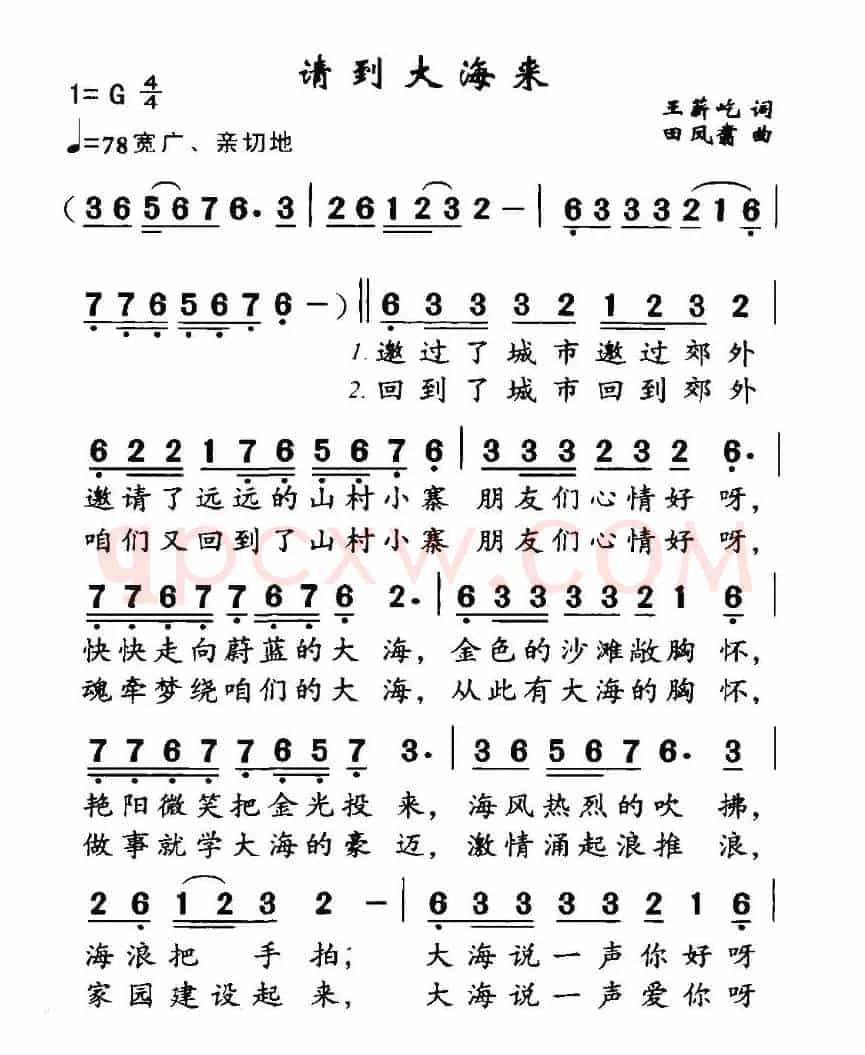 请到大海来
1= G 4/4
♩=78宽广、亲切地
王薪屹 词
田凤霱 曲
(36 5676 6· 3 | 26 123 2 – | 6333 3216 |
7765676 6 –) ‖ 6333 32 123 2 |
1. 邀过了城市邀过郊外
2. 回到了城市回到郊外
622 176 5676 6 | 333232 2 6· |
邀请了远远的山村小寨 朋友们心情好 呀,
咱们又回到了山村小寨 朋友们心情好 呀,
7767 7676 2· | 6333 3321 6 |
快快走向蔚蓝的大 海, 金色的沙滩敞胸 怀,
魂牵梦绕咱们的大 海, 从此有大海的胸 怀,
7767 7657 3· | 36 5676 6· 3 |
艳阳微笑把金光投 来, 海风热烈的吹 拂,
做事就学大海的豪 迈, 激情涌起浪推 浪,
26 123 2 – | 6333 3321 6 |
海浪把 手 拍; 大海说一声你好呀
家园建设起 来, 大海说一声爱你呀
qpcxw.com